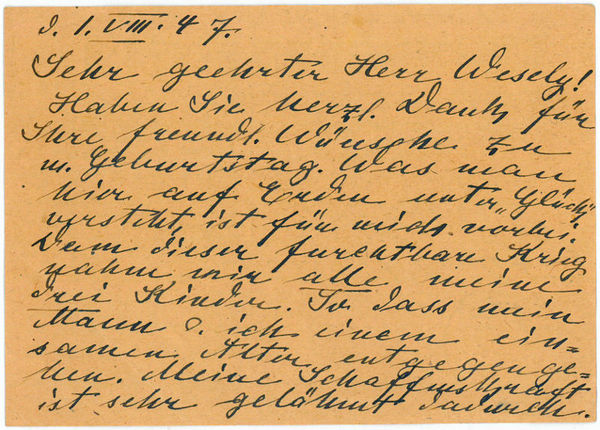 d. 1. VIII. 47.
Sehr geehrter Herr Wesely!
Haben Sie herzl. Dank für
Ihre freundl. Wünsche zu
m. Geburtstag. Was man
hier auf Erden unter „Glück"
versteht, ist für mich vorbei.
Denn dieser furchtbare Krieg
nahm mir alle meine
drei Kinder. So dass mein
Mann u. ich einem ein=
samen Alter entgegenge=
hen. Meine Schaffenskraft
ist sehr gelähmt dadurch.